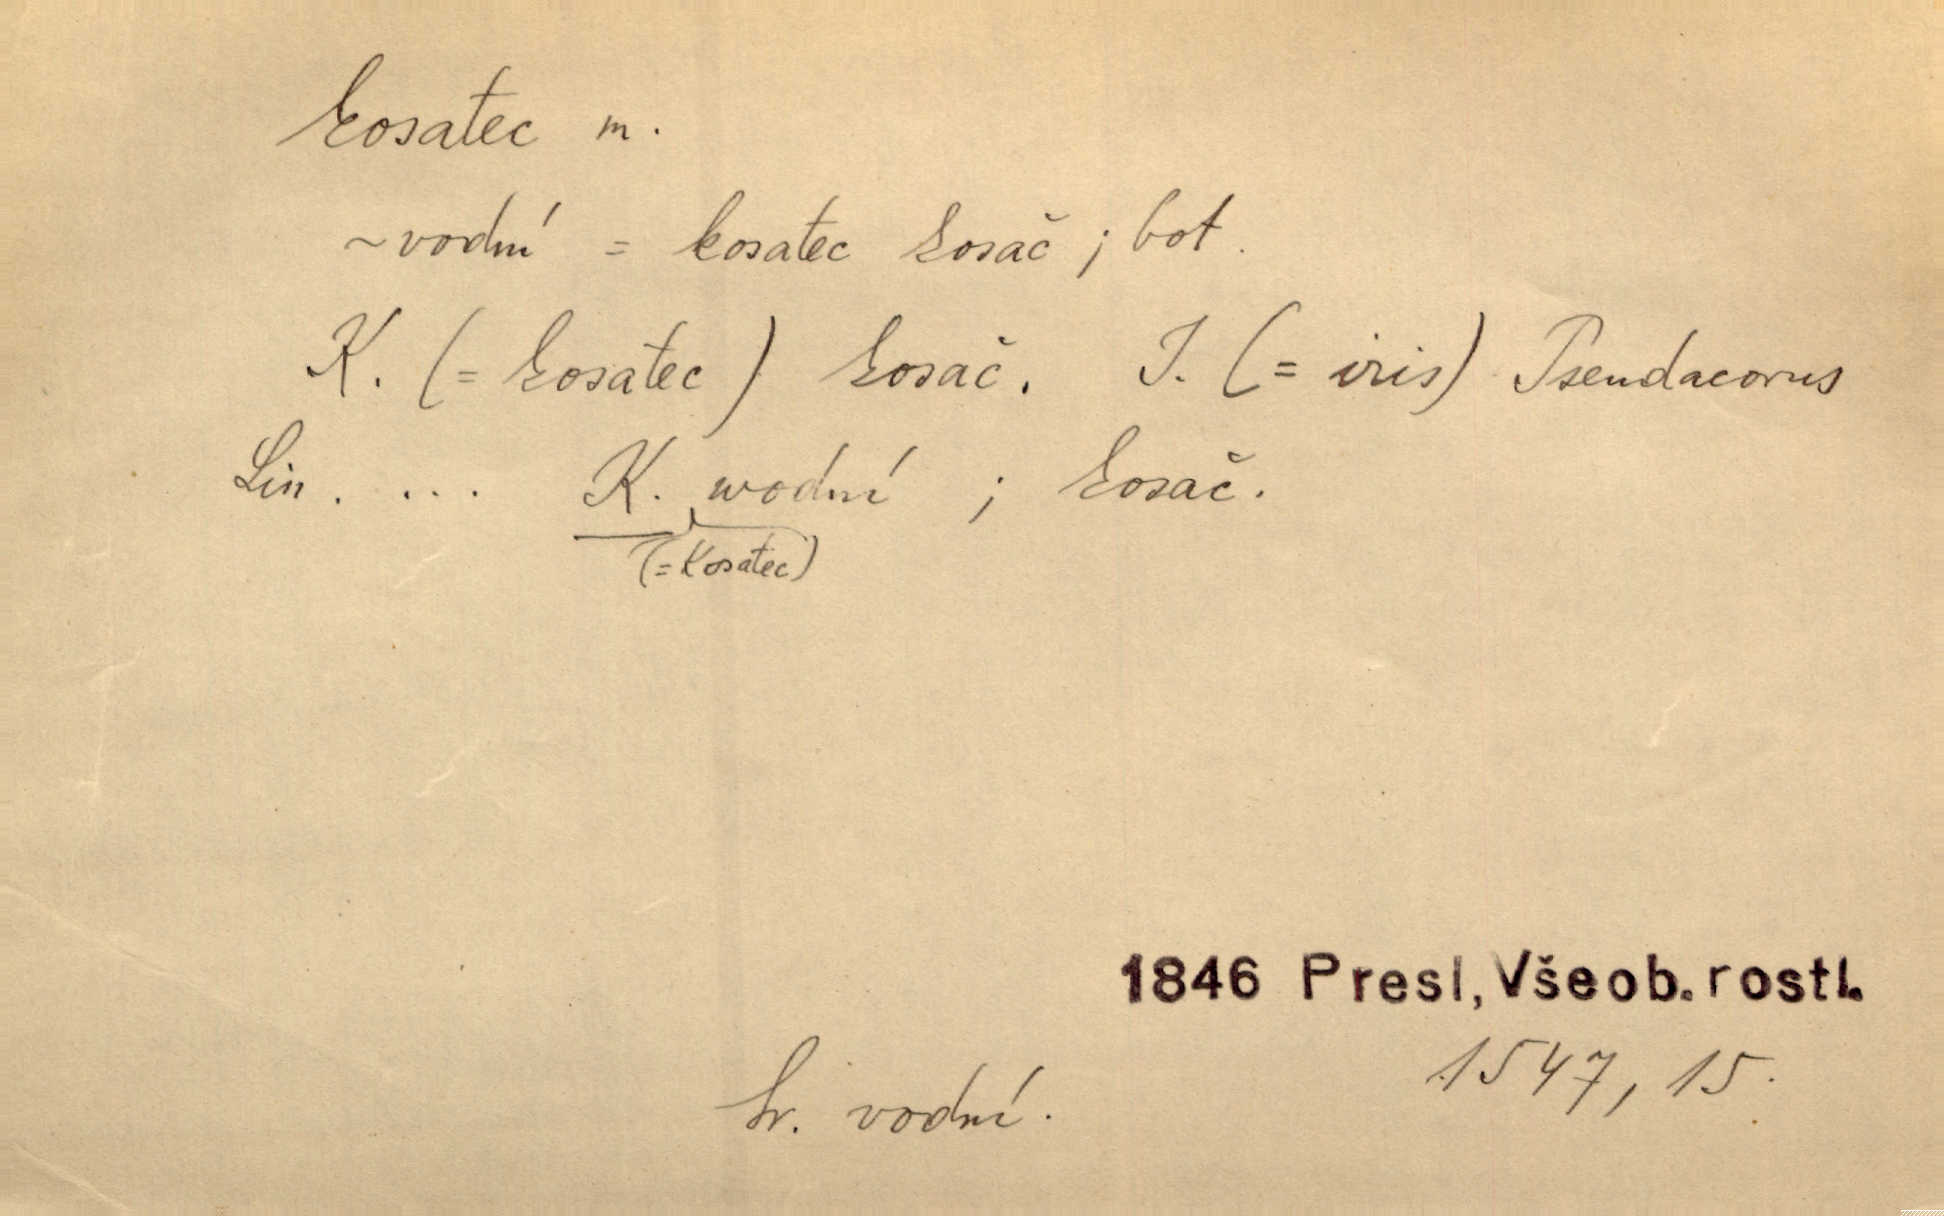 kosatec m.
~ vodní = kosatec kosač ; bot.
K. (= kosatec) kosač. I. (= iris) Pseudacorus
Lin. ... K. wodní ; kosač.
(= Kosatec)
1846 Presl, Všeob. rostl.
1547, 15.
Sr. vodní.